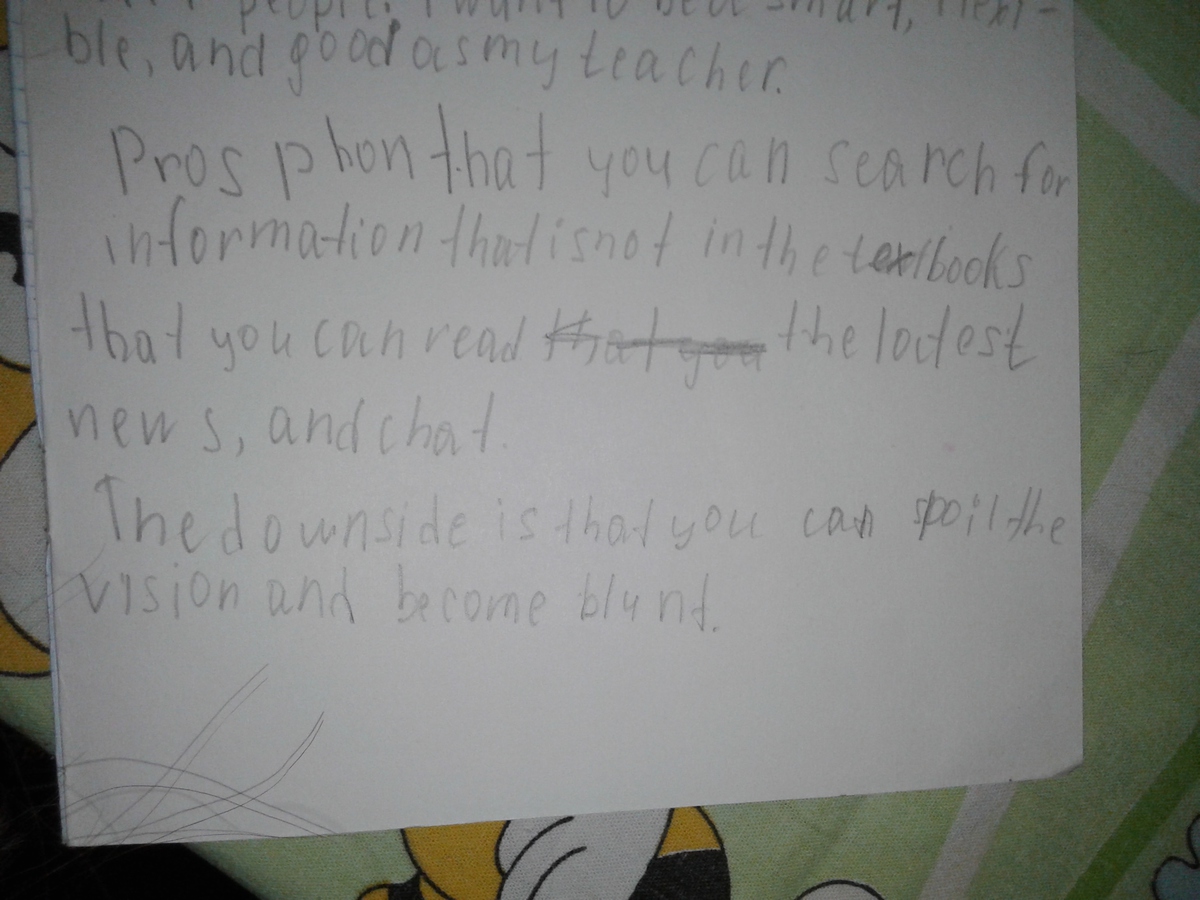 people. I want to be a smart, flexi-
ble, and good as my teacher.
Pros phon that you can search for
information that is not in the textbooks
that you can read that you the lodest
news, and chat.
The downside is that you can spoil the
vision and become blunt.